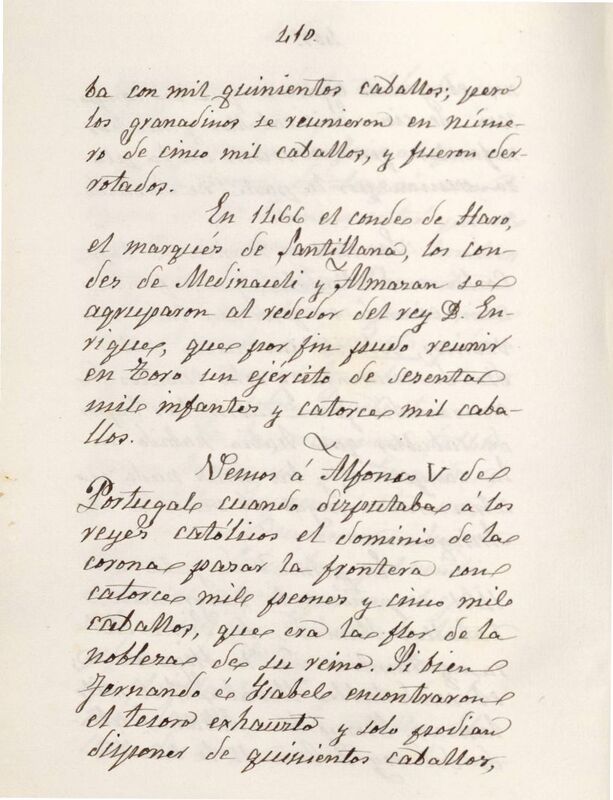 410.
ba con mil quinientos caballos; pero
los granadinos se reunieron en núme-
ro de cinco mil caballos, y fueron der-
rotados.
En 1466 el conde de Haro,
el marqués de Santillana, los con-
des de Medinaceli y Almazan se
agruparon al rededor del rey D. En-
rique, que por fin pudo reunir
en Toro un ejército de sesenta
mil infantes y catorce mil caba-
llos.
Vemos á Alfonso V de
Portugal cuando disputaba á los
reyes católicos el dominio de la
corona pasar la frontera con
catorce mil peones y cinco mil
caballos, que era la flor de la
nobleza de su reino. Si bien
Fernando é Ysabel encontraron
el tesoro exhausto y solo podian
disponer de quinientos caballos,